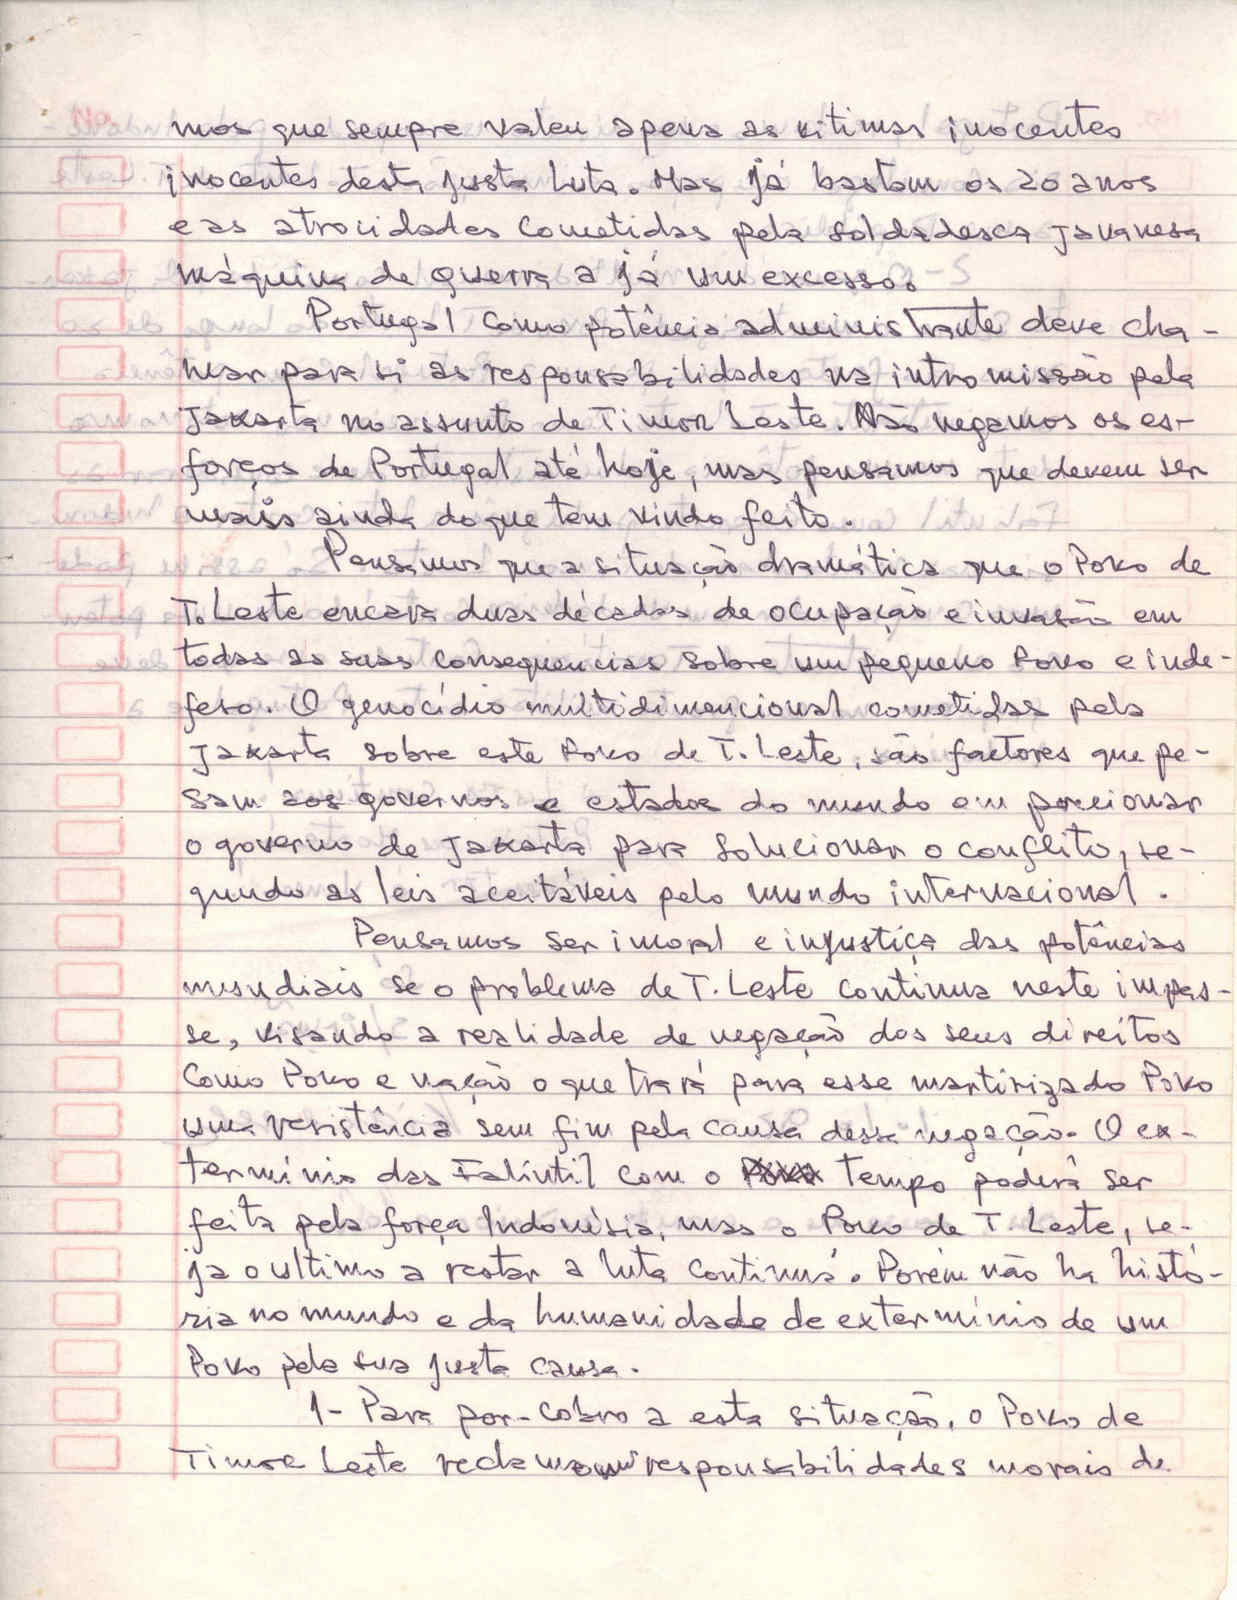 mos que sempre valeu apena as vitimas inocentes
inocentes desta justa luta. Mas já bastam os 20 anos
e as atrocidades cometidas pela soldadesca javanesa
máquina de guerra a já um excesso.
Portugal como potência administrante deve cha-
mar para si as responsabilidades na intromissão pela
Jakarta no assunto de Timor Leste. Não negamos os es-
forços de Portugal até hoje, mas pensamos que devem ser
mais ainda do que tem vindo feito.
Pensamos que a situação dramática que o Povo de
T. Leste encara duas décadas de ocupação e invasão em
todas as suas consequencias sobre um pequeno Povo e inde-
feso. O genocídio multidimencional cometidas pela
Jakarta sobre este Povo de T. Leste, são factores que pe-
sam aos governos e estados do mundo em porcionar
o governo de Jakarta para solucionar o conflito, se-
gundo as leis aceitáveis pelo mundo internacional.
Pensamos ser imoral e injustiça das potências
mundiais se o problema de T. Leste continua neste impas-
se, visando a realidade de negação dos seus direitos
como Povo e nação o que trará para esse martirizado Povo
uma resistência sem fim pela causa dessa negação. O ex-
termínio das Falintil com o tempo poderá ser
feita pela força Indonésia, mas o Povo de T. Leste, se-
ja o ultimo a restar a luta continuá. Porém não ha histó-
ria no mundo e da humanidade de extermínio de um
Povo pela sua justa causa.
1- Para por-cobro a esta situação, o Povo de
Timor Leste responsabilidades morais de